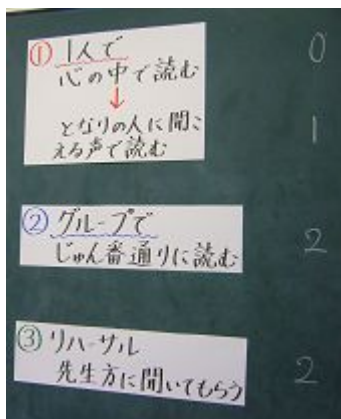 ① 1人で
心の中で読む
↓
となりの人に聞こ
える声で読む
② グループで
じゅん番通りに読む
③ リハーサル
先生方に聞いてもらう
0
1
2
2